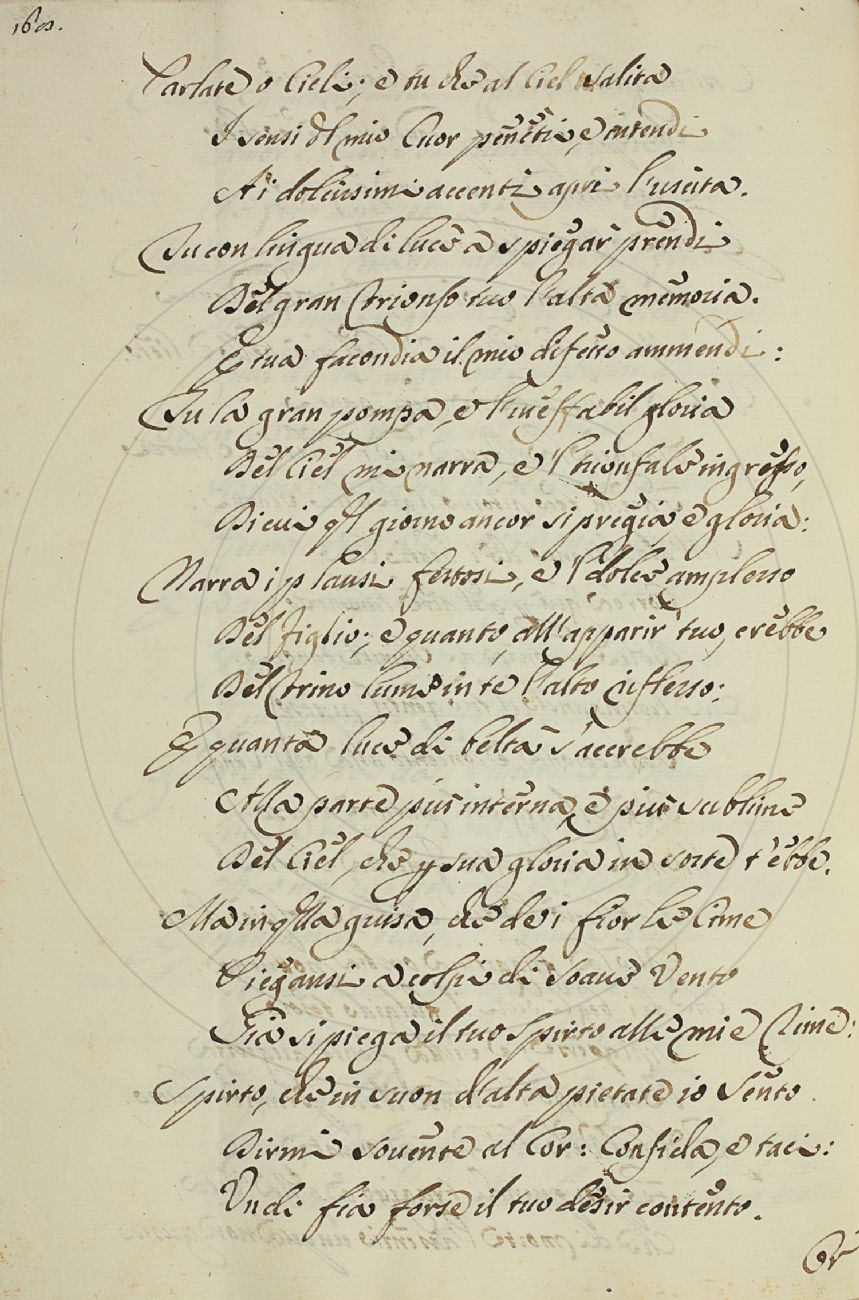 168.
Parlate o Cieli; e tu che al Ciel salita
I sensi dl mio Cuor penetri, e intendi
Ai dolcissimi accenti apri l'uscita.
Tu con lingua di luce a spiegar prendi
Del gran trionfo tuo l'alta memoria.
E tua facondia il mio difetto ammendi:
Tu la gran pompa, e l'ineffabil gloria
Del Ciel mi narra, e l'trionfale ingresso,
Di cui qsl giorno ancor si pregia, e gloria:
Narra i plausi festosi, e l'dolce amplesso
Del Figlio; e quanto, all'apparir tuo, crebbe
Del trino lume in te l'alto riflesso:
E quanta luce di beltà s'accrebbe
Alla parte più interna, e più sublime
Del Ciel, che p sua gloria in sorte t'ebbe.
Ma in qlla guisa, che de i fior le Cime
Piegansi a colpi di soave Vento
Già si piega il tuo Spirto alle mie Rime:
Spirto, che in suon d'alta pietate io sento
Dirmi sovente al Cor: Confida, e taci:
Un dì fia forse il tuo desir contento.
Or